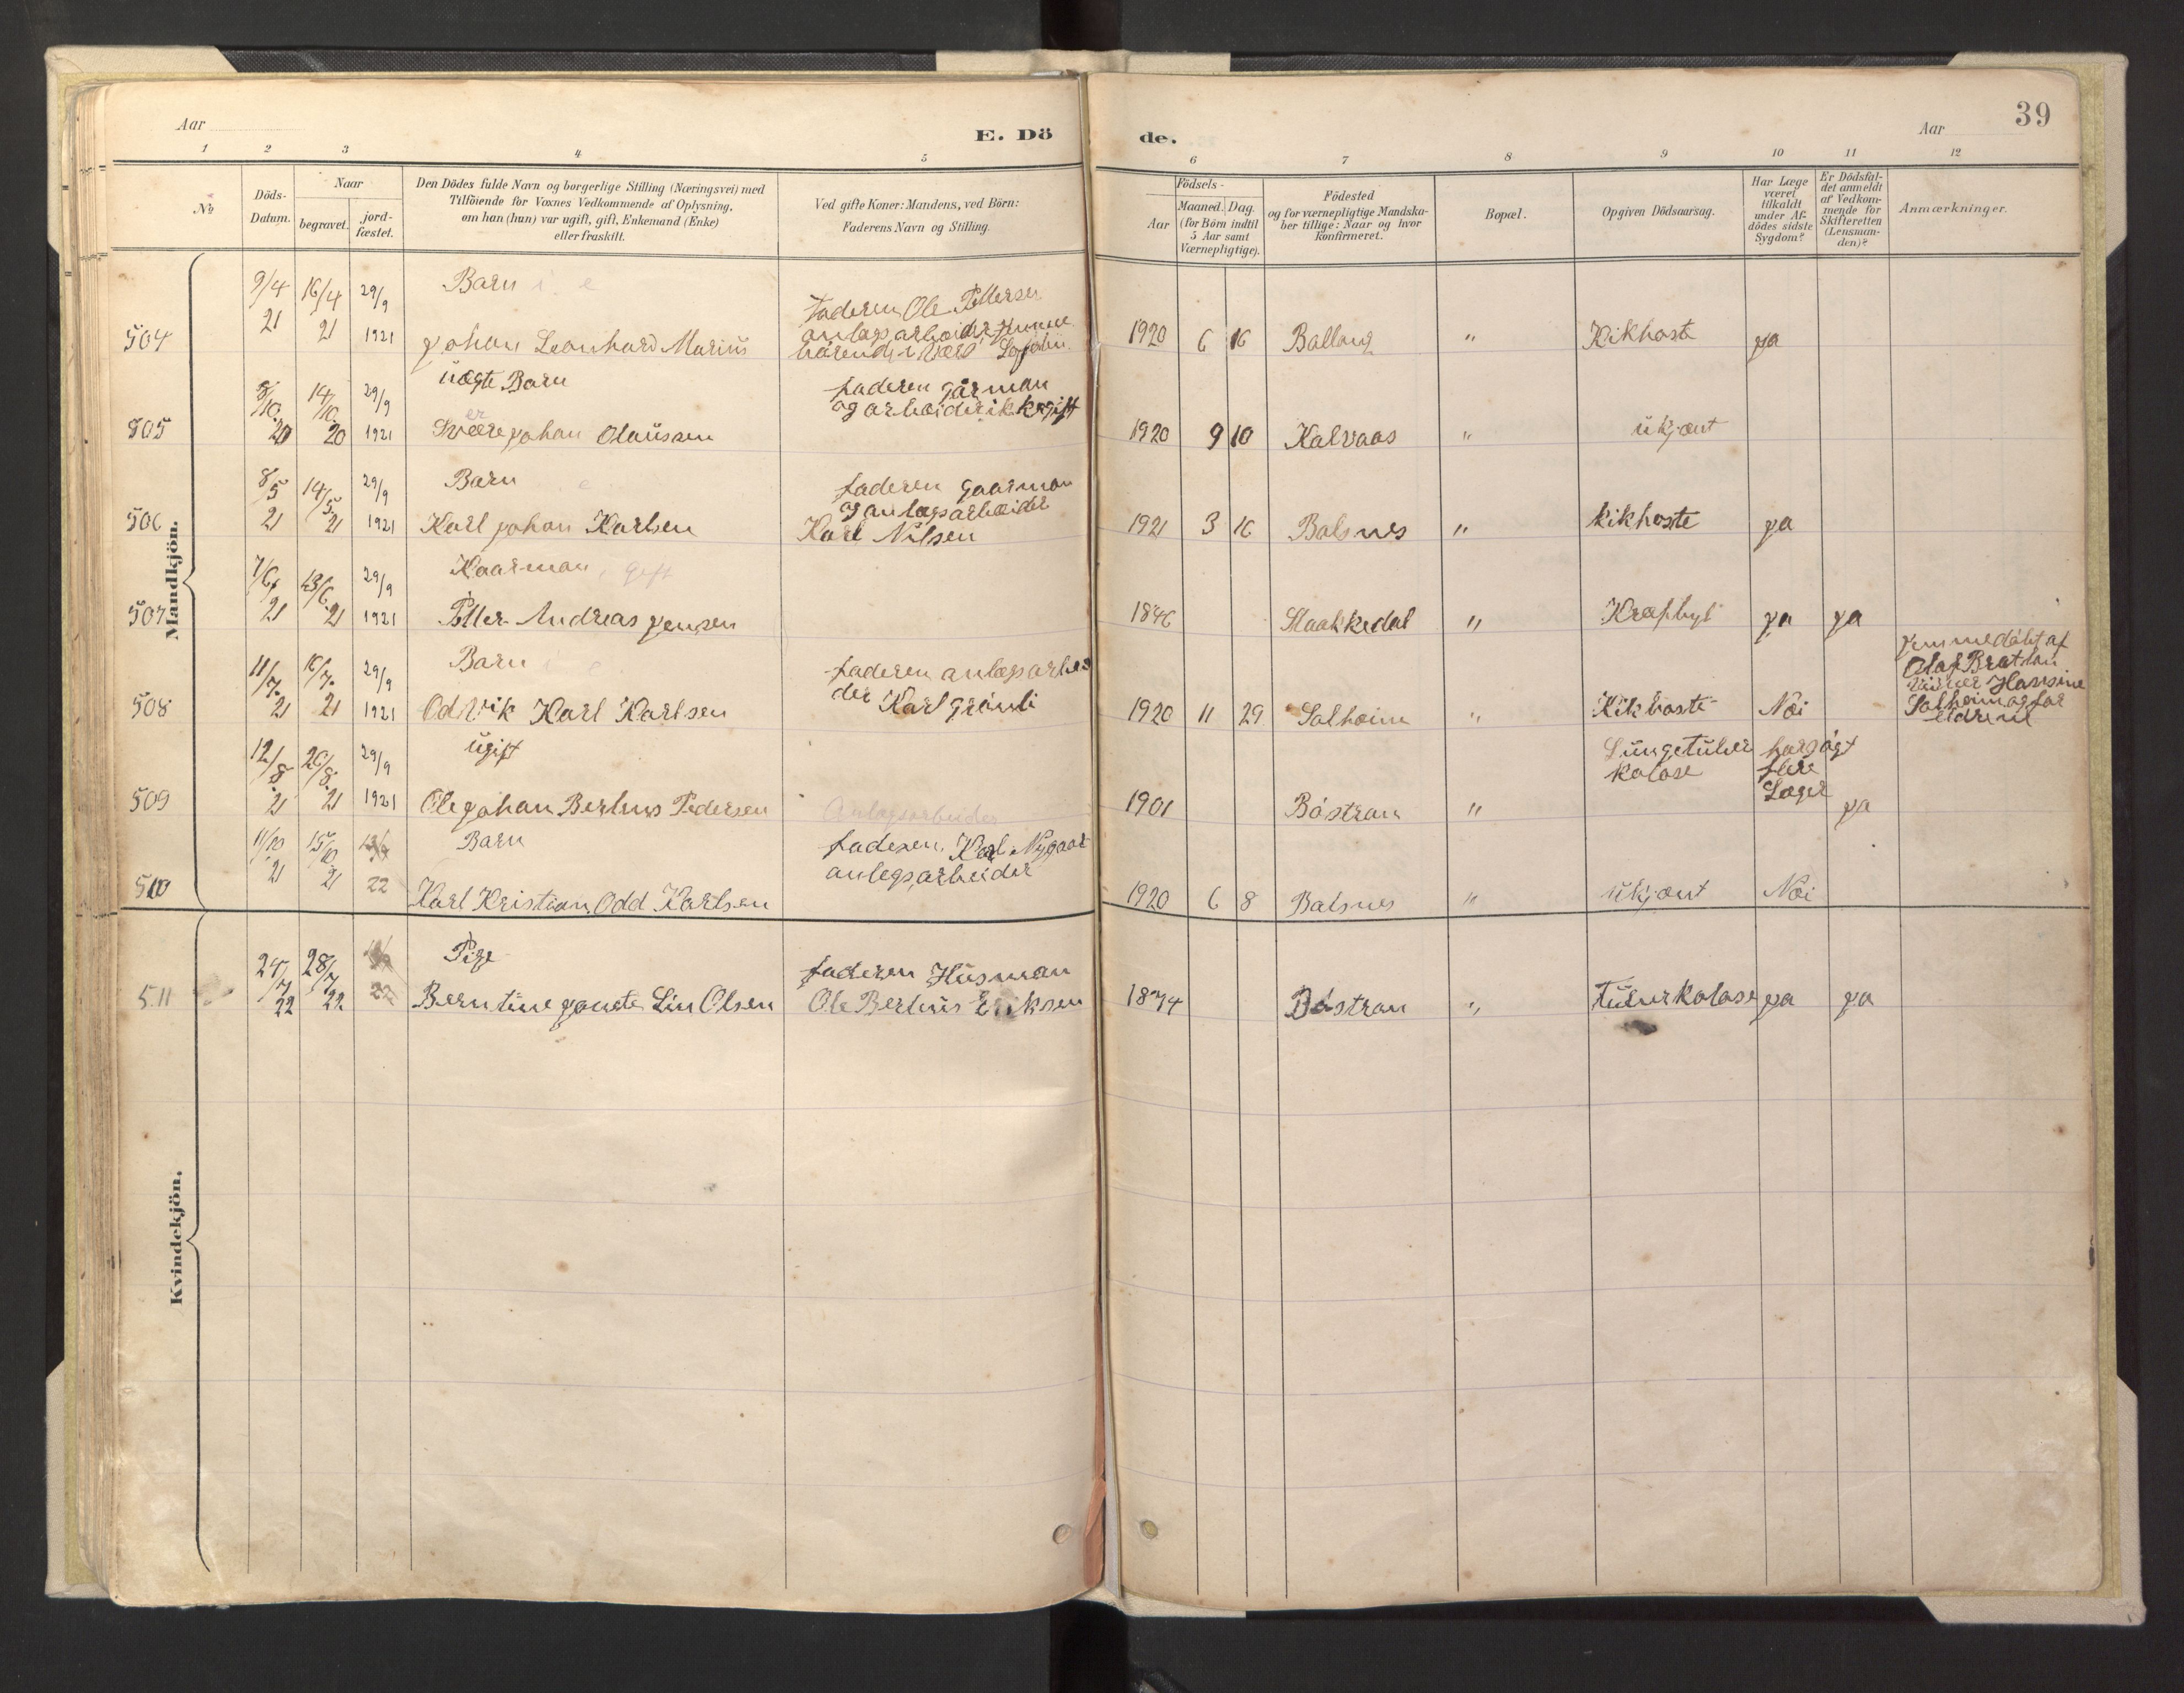 Aar
E. Dö
de.
Aar
39
1 2 3 4 5 6 7 8 9 10 11 12
No
Döds-
Datum.
Naar
begravet.
jord-
fæstet.
Den Dödes fulde Navn og borgerlige Stilling (Næringsvei) med
Tilföiende for Voxnes Vedkommende af Oplysning,
om han (hun) var ugift, gift, Enkemand (Enke)
eller fraskilt.
Ved gifte Koner: Mandens, ved Börn:
Faderens Navn og Stilling.
Födsels-
Aar
Maaned. Dag.
(for Börn indtil
5 Aar samt
Værnepligtige).
Födested
og for værnepligtige Mandska-
ber tillige: Naar og hvor
konfirmeret.
Bopæl.
Opgiven Dödsaarsag.
Har Læge
været
tilkaldt
under Af-
dödes sidste
Sygdom?
Er Dödsfal-
det anmeldt
af Vedkom-
mende for
Skifteretten
(Lensman-
den)?
Anmærkninger.
Mandkjön.
504
9/4 21
16/4 21
29/9 1921
Barn
Johan Leonhard Marius
faderen Ole Pettersen
anlægsarbeider
1920 6 16 Ballang " Kikhoste ja
505
8/10 20
14/10 20
29/9 1921
üægte Barn
Sværre Johan Olaüssen
er
faderen gårman
og arbeider ikke gift
1920 9 10 Kalvaas " ükjænt
506
8/5 21
14/5 21
29/9 1921
Barn
Karl Johan Karlsen
faderen gaarman
og anlægsarbeider
Karl Nilsen
1921 3 16 Balsnes " kikhoste ja
507
7/6 21
13/6 21
29/9 1921
Kaarman, gift
Petter Andreas Jensen
1846 Staakkedal " Kræftbyl ja ja
508
11/7 21
16/7 21
29/9 1921
Barn
Odvik Karl Karlsen
faderen anlægsarbei
der Karl Grönli
1920 11 29 Solheim " Kikhoste Nei
Jemmedöbt af
Olaf Bratlan
Hansine
Solheim og for
eldrene
509
12/8 21
20/8 21
29/9 1921
ügift
Ole Johan Bertnus Pedersen
Anlægsarbeider
1901 Böstran "
Lüngetüber
kolose
har søgt
flere
Læger
ja
510
11/10 21
15/10 21
22
Barn
Karl Kristian Odd Karlsen
faderen Karl Nygaar
anlegsarbeider
1920 6 8 Balsnes " ükjænt Nei
Kvindekjön.
511
24/7 22
28/7 22
22
Pige
Berntine Janete Lin Olsen
faderen Hüsman
Ole Bertnüs Eriksen
1874 Böstran " Tüburkolose ja ja